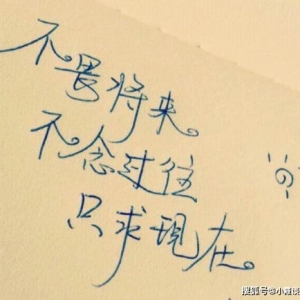 不畏将来。
不念过往
只求现在。
搜狐号@小嘴谈